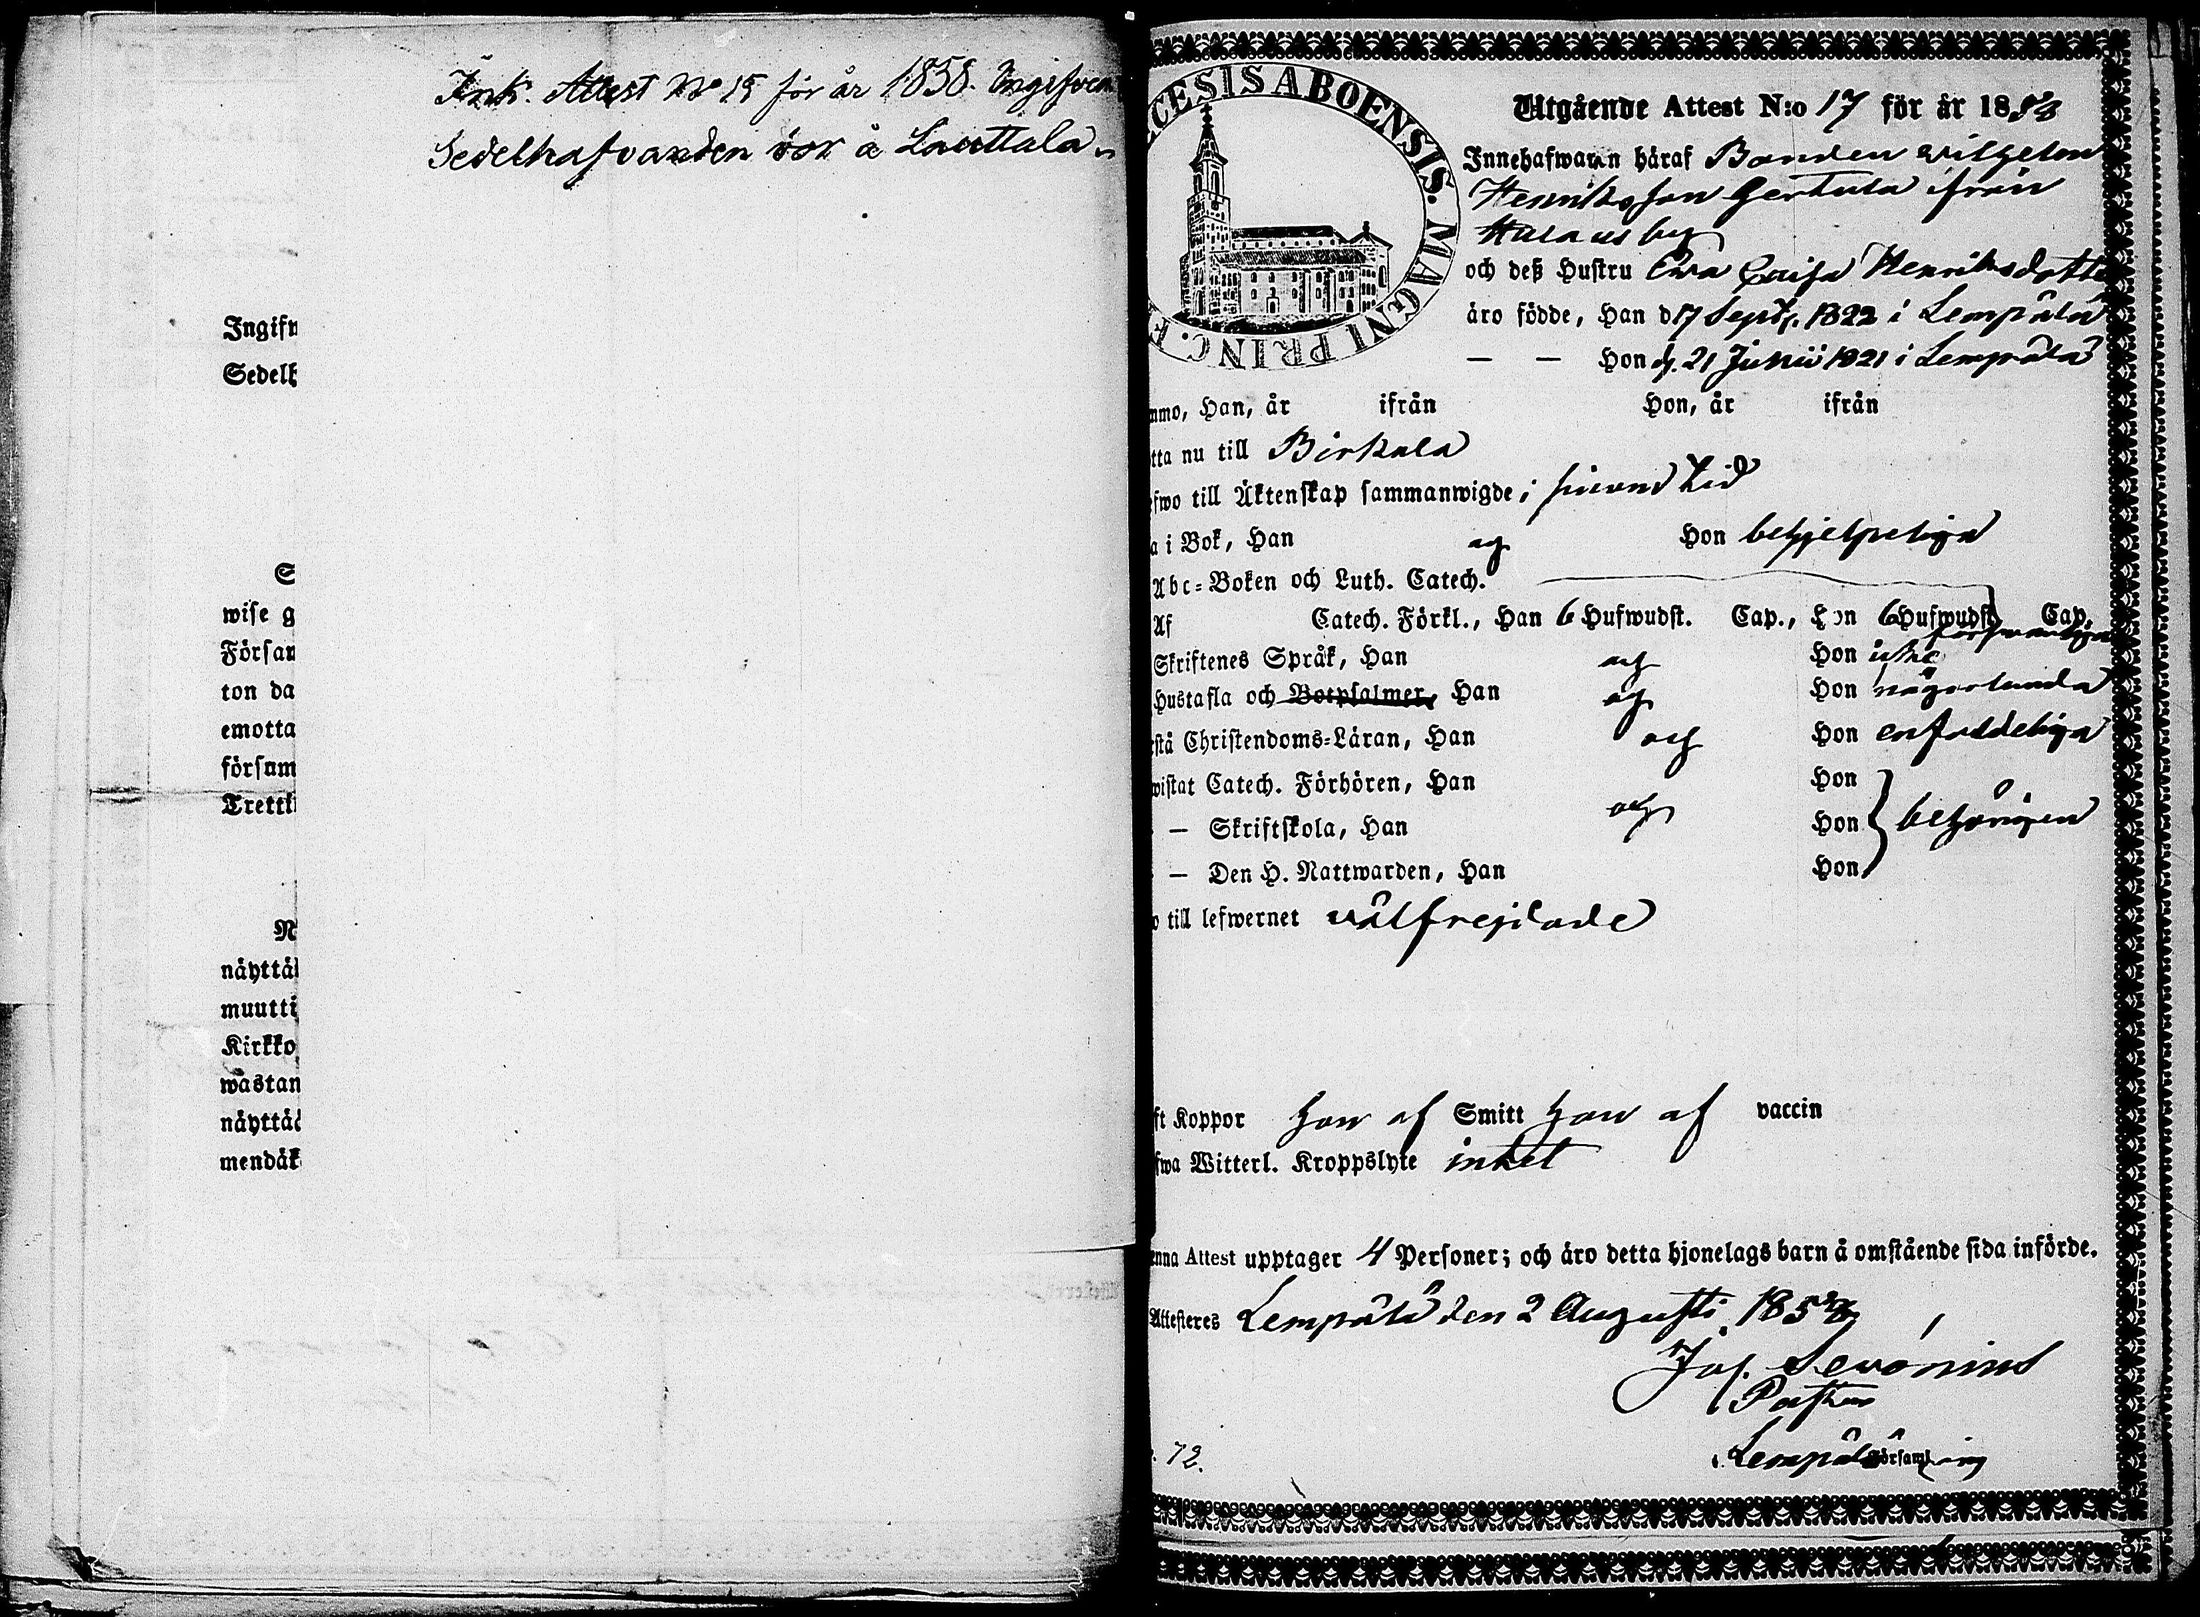 Ink. Attest No 15 för år 1858. Ingifven
Sedelhafvanden bor å Lauttala
Ingifv
Sedelh
S
wise g
Försam
ton da
emotta
försum
Trettk
N
näyttä
muutti
Kirkko
wastan
näyttä
mendäk
ECESIS ABOENSIS. MAGNI PRINC. F
Utgående Attest N:o 17 för år 1858
Innehafwaren häraf Bonden
Henriksson Gerkula ifrån
by
och deß Hustru Ewa Cajsa Henriksdotte
äro födde, Han d 17 Sept. 1822 i Lempälä
— — Hon d. 21 Junii 1821 i Lempälä
mmo, Han, år ifrån Hon, år ifrån
tta nu till Birkala
efwo till Äktenskap sammanwigde i sinom tid
a i Bok, Han och Hon behjelpeliga
Abc-Boken och Luth. Catech.
Af Catech. Förkl., Han 6 Hufwudst. Cap., Hon 6 Hufwudst. Cap.
försvarliga
Skriftenes Språk, Han och Hon icke
Hustafla och Botpsalmer, Han och Hon någorlunda
rstå Christendoms-Läran, Han och Hon enfaldeliga
wistat Catech. Förhören, Han Hon
— Skriftskola, Han och Hon behörigen
— Den H. Nattwarden, Han Hon
o till lefwernet välfrejdade
ft Koppor Han af Smitt Hon af vaccin
fwa Witterl. Kroppslyte intet
enna Attest upptager 4 Personer; och äro detta hjonelags barn å omstående sida införde.
Attesteras Lempälä den 2 Augusti 1858
Jos. Sevonius
Pastor
i. Lempälä Församling
. 72.